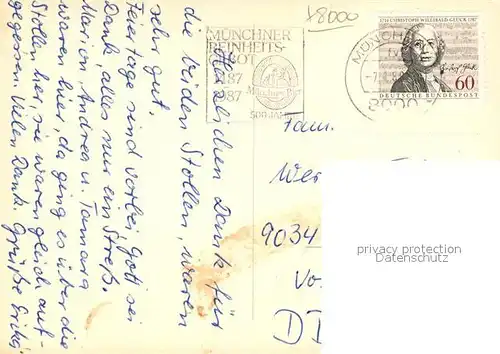 x8000
MÜNCHNER
REINHEITS-
GEBOT
1487
1987
Münchner Bier
500 JAHRE
MÜNCHEN
8000
1714 CHRISTOPH WILLIBALD GLUCK 1787
60
DEUTSCHE BUNDESPOST
Herzlichen Dank für
die beiden Stollen, waren
sehr gut.
Feiertage sind vorbei Gott sei
Dank, alles nur ein Streß.
Marion, Andrea u. Tamara
waren hier, da ging es über die
Stollen her, sie waren gleich auf-
gegessen. Vielen Dank. Grüße Erika.
Fam.
Wer
9034
Vo
D
privacy protection